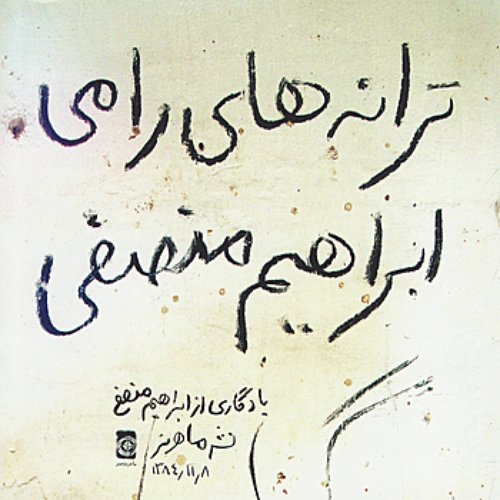 ترانه های رامی
ابراهیم منصفی
یادگاری از ابراهیم منصفی
نشر ماهریز
۱۳۸۴٫۱۱٫۸